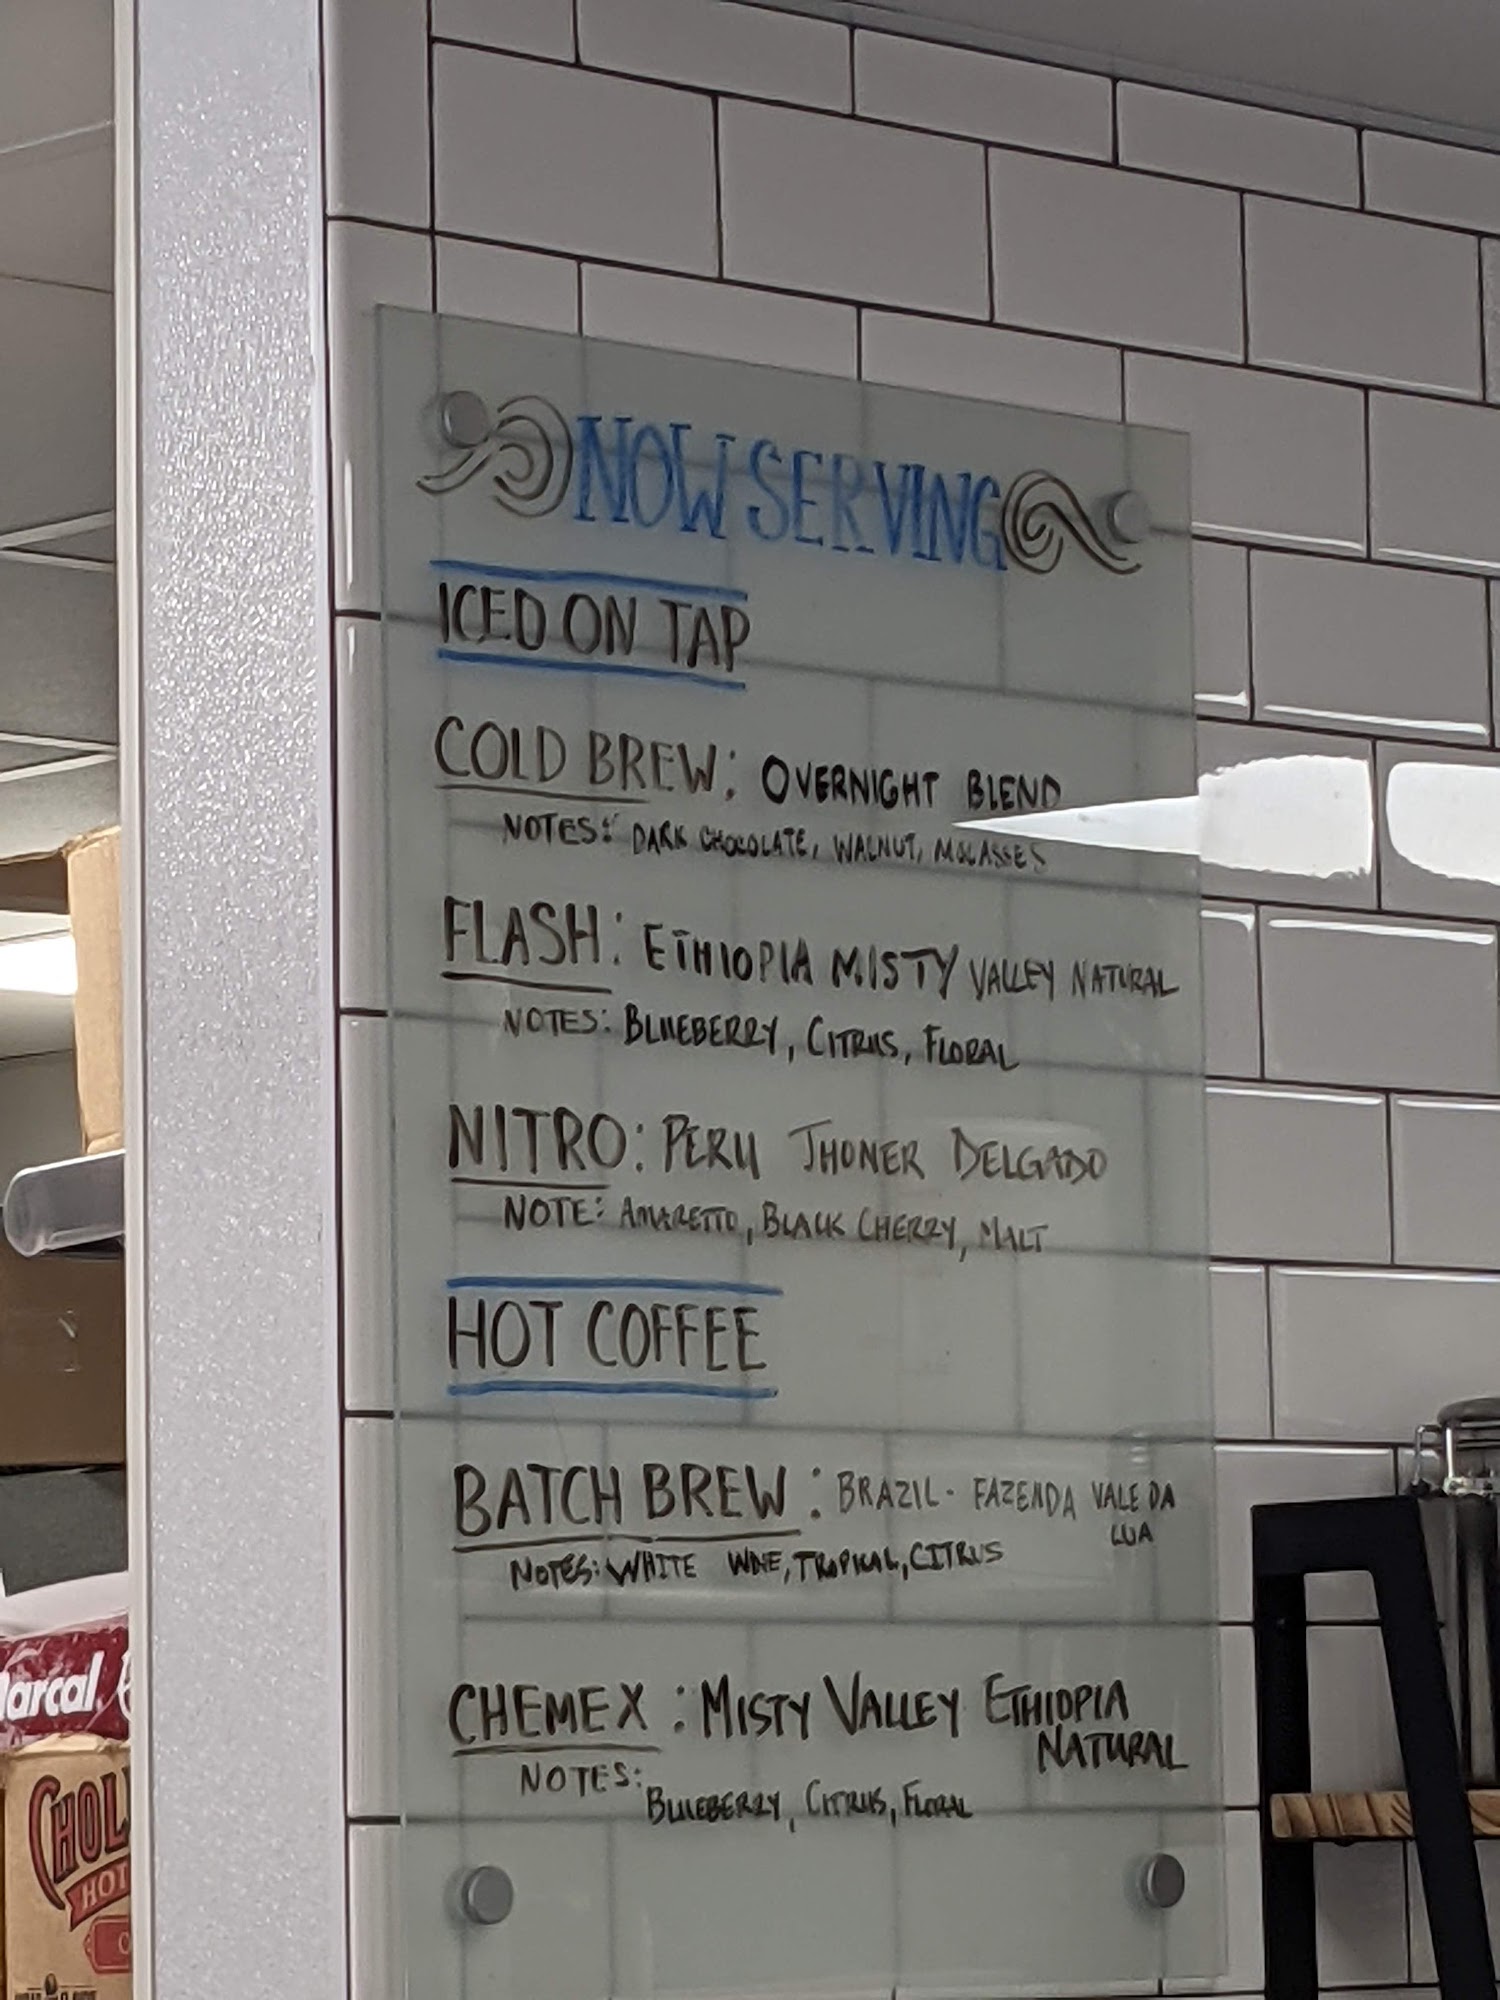 NOW SERVING
ICED ON TAP
COLD BREW: OVERNIGHT BLEND
NOTES: DARK CHOCOLATE, WALNUT, MOLASSES
FLASH: ETHIOPIA MISTY VALLEY NATURAL
NOTES: BLUEBERRY, CITRUS, FLORAL
NITRO: PERU JHONER DELGADO
NOTE: AMARETTO, BLACK CHERRY, MALT
HOT COFFEE
BATCH BREW: BRAZIL - FAZENDA VALE DA
LUA
NOTES: WHITE WINE, TROPICAL, CITRUS
CHEMEX: MISTY VALLEY ETHIOPIA
NATURAL
NOTES:
BLUEBERRY, CITRUS, FLORAL
Marcal
CHOL
HOT